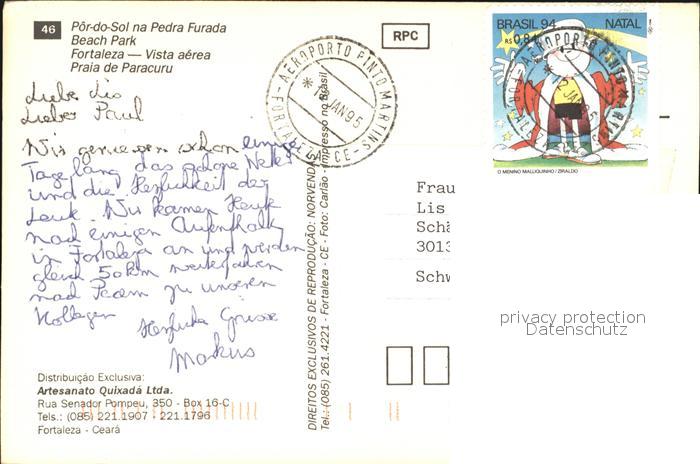 46
Pôr-do-Sol na Pedra Furada
Beach Park
Fortaleza — Vista aérea
Praia de Paracuru
RPC
AEROPORTO PINTO MARTINS
JAN 95
FORTALEZA - CE
BRASIL 94 NATAL
R$ 0,84
O MENINO MALUQUINHO / ZIRALDO
Liebe Lis
Lieber Paul
Wir geniessen schon einige
Tage lang das schöne Wetter
und die Herzlichkeit der
Leute. Wir kamen Heute
nach einigen Aufenthalt
in Fortaleza an und werden
gleich 50km weiterfahren
nach Pecem zu unseren
Kollegen
Herzliche Grüsse
Markus
Distribuição Exclusiva:
Artesanato Quixadá Ltda.
Rua Senador Pompeu, 350 - Box 16-C
Tels.: (085) 221.1907 - 221.1796
Fortaleza - Ceará
DIREITOS EXCLUSIVOS DE REPRODUÇÃO: NORVENDA
Tel. (085) 261.4221 - Fortaleza - CE - Foto: Carlão - Impresso no Brasil
Frau
Lis
Schä
3013
Schw
privacy protection
Datenschutz